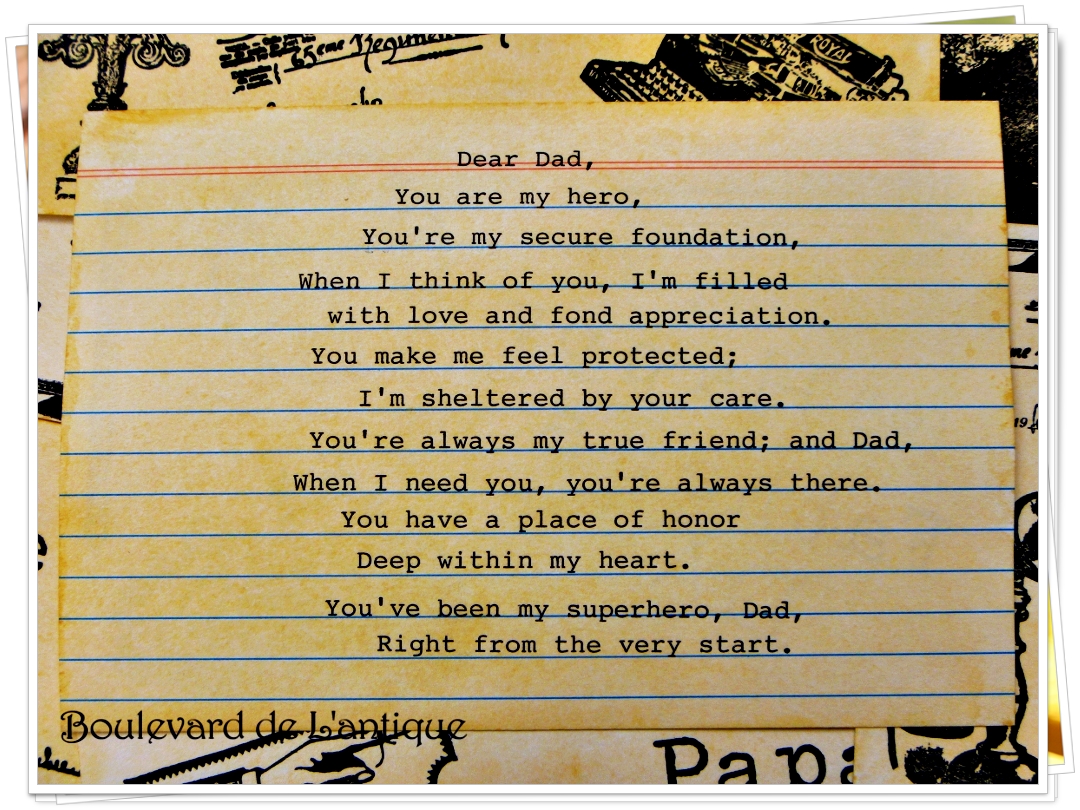 65eme Regiment
ROYAL
Dear Dad,
You are my hero,
You're my secure foundation,
When I think of you, I'm filled
with love and fond appreciation.
You make me feel protected;
I'm sheltered by your care.
You're always my true friend; and Dad,
When I need you, you're always there.
You have a place of honor
Deep within my heart.
You've been my superhero, Dad,
Right from the very start.
Boulevard de L'antique
Papa